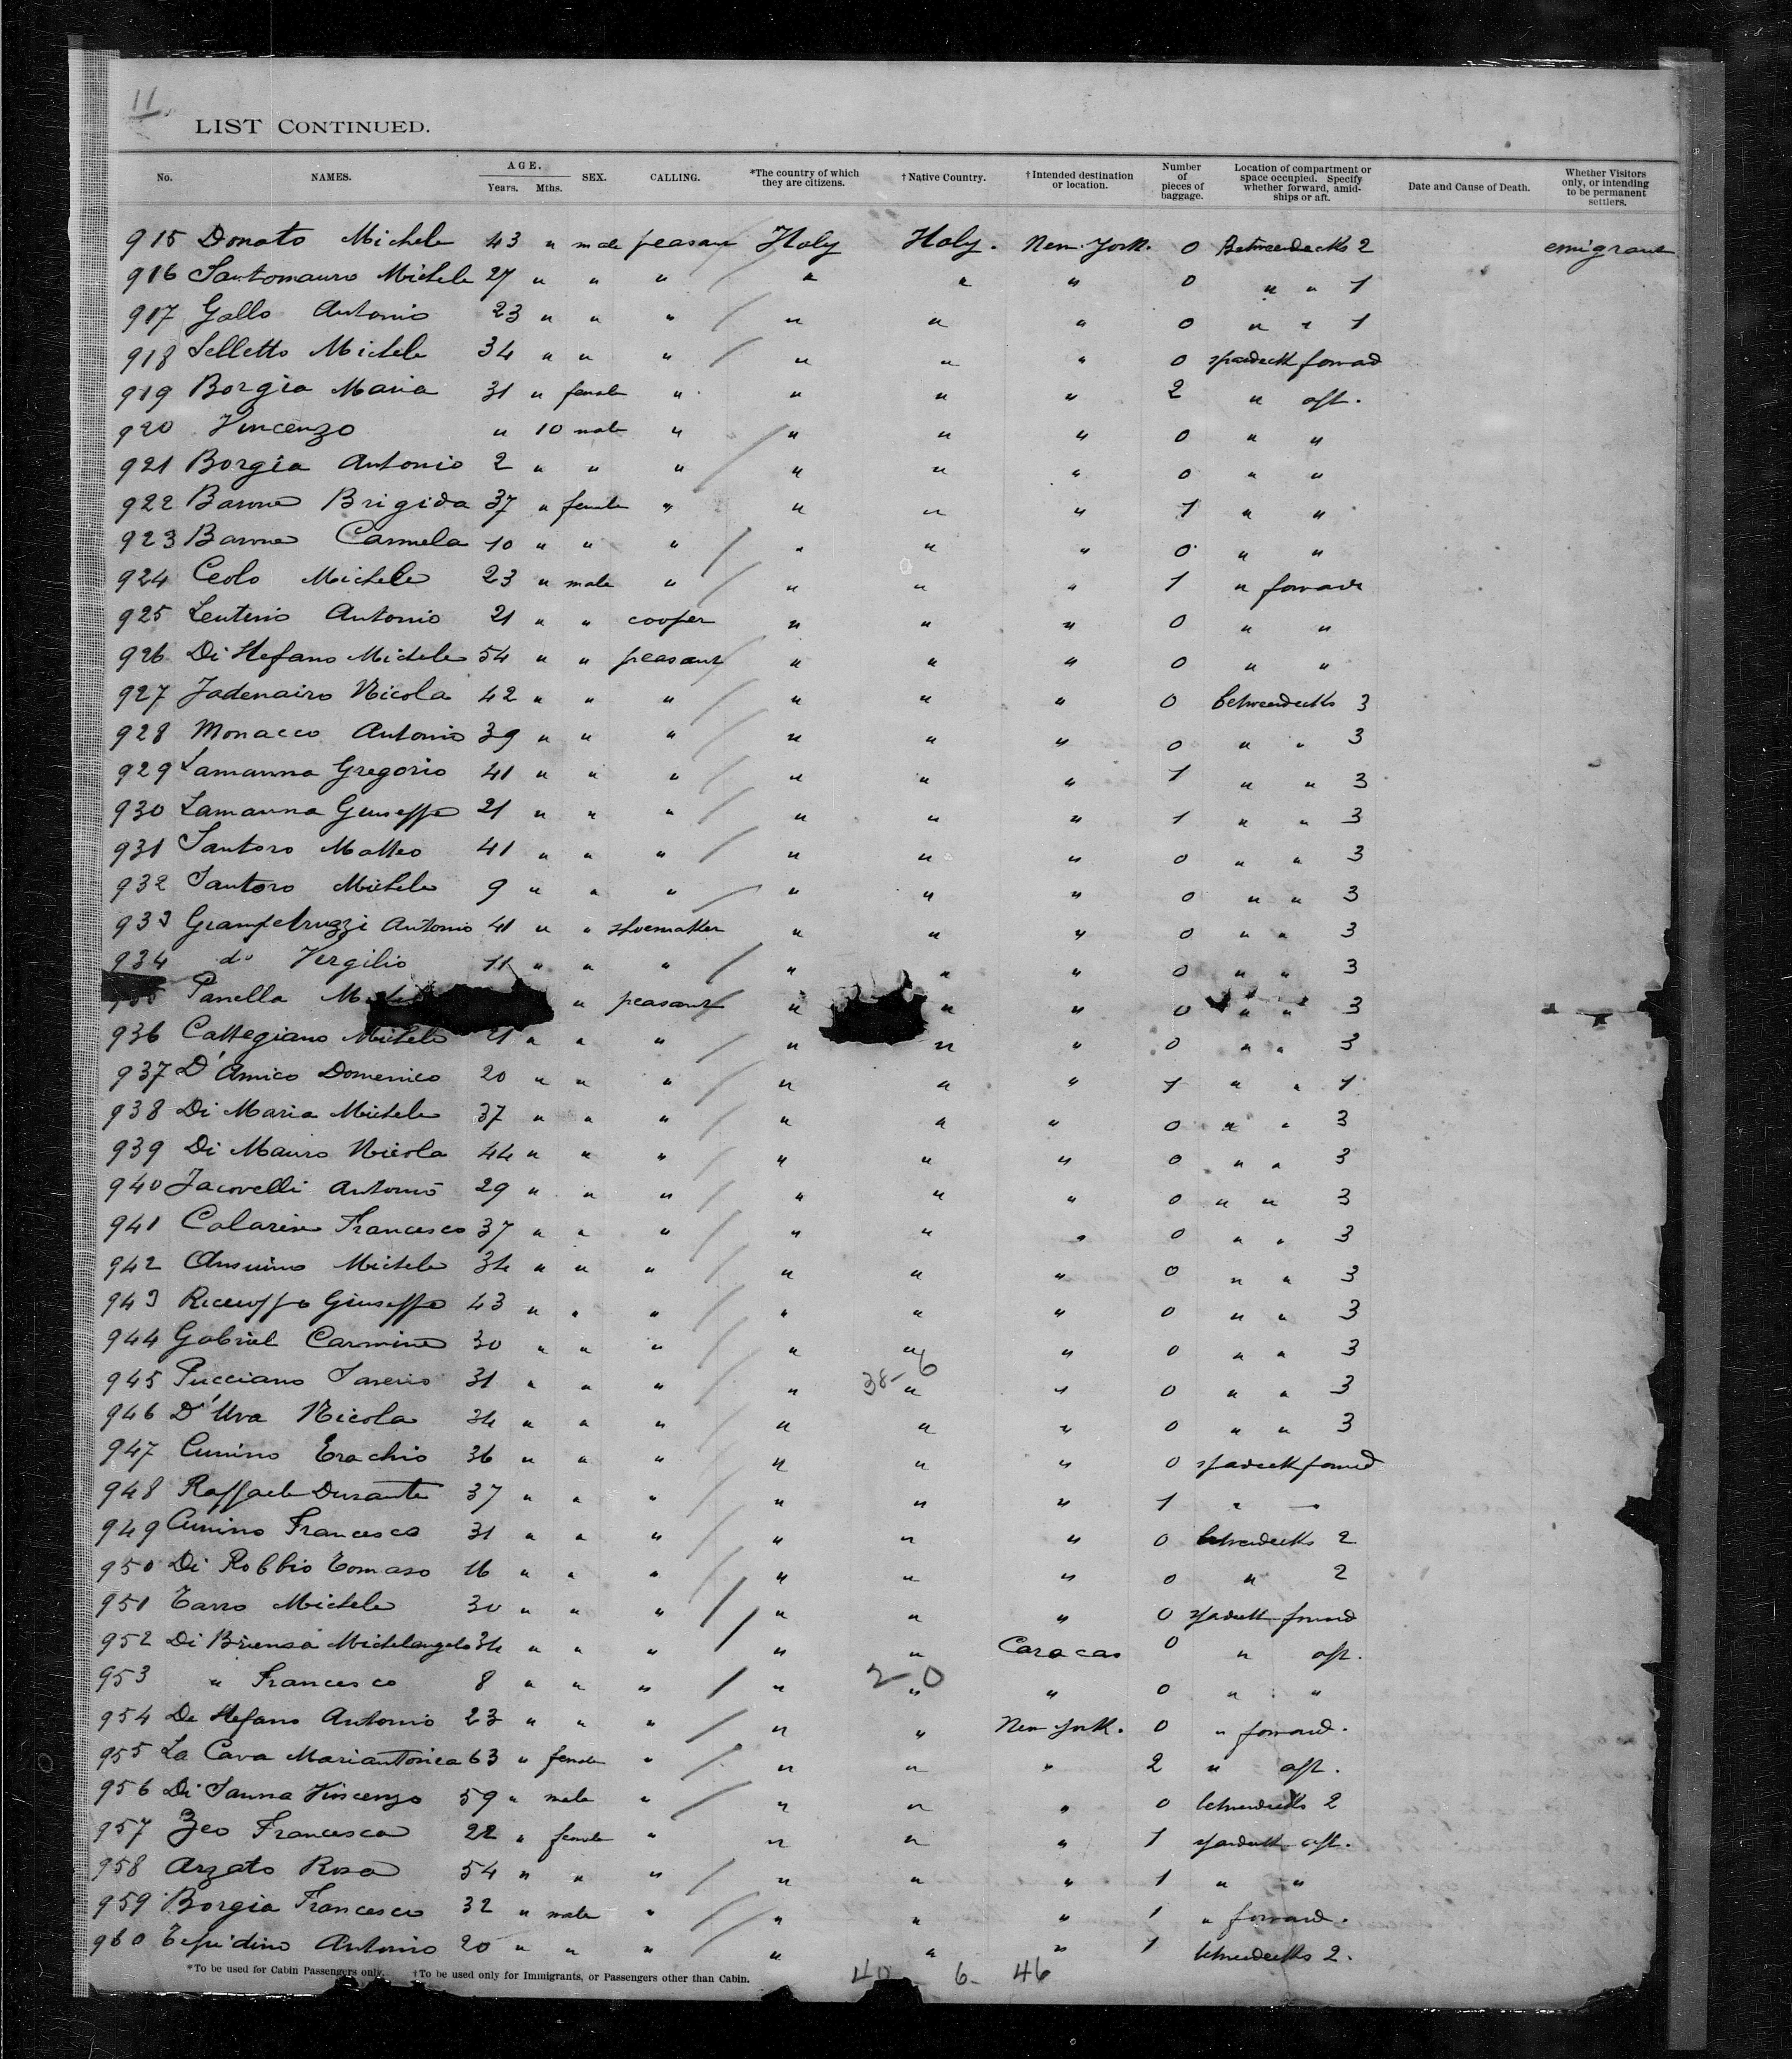 11.
LIST CONTINUED.
No. NAMES. AGE. Years. Mths. SEX. CALLING. *The country of which they are citizens. †Native Country. †Intended destination or location. Number of pieces of baggage. Location of compartment or space occupied. Specify whether forward, amidships or aft. Date and Cause of Death. Whether Visitors only, or intending to be permanent settlers.
915 Donato Michele 43 " male peasant Italy Italy. New-York. 0 Betweendecks 2 emigrant
916 Santomauro Michele 27 " " " " " " 0 " " 1
917 Gallo Antonio 23 " " " " " " 0 " " 1
918 Selletto Michele 34 " " " " " " 0 spardeck forward
919 Borgia Maria 31 " female " " " " 2 " aft.
920 Vincenzo " 10 male " " " " 0 " "
921 Borgia Antonio 2 " " " " " " 0 " "
922 Barone Brigida 37 " female " " " " 1 " "
923 Barone Carmela 10 " " " " " " 0 " "
924 Ceolo Michele 23 " male " " " " 1 " forward
925 Antonio 21 " " cooper " " " 0 " "
926 Di Stefano Michele 54 " " peasant " " " 0 " "
927 Nicola 42 " " " " " " 0 betweendecks 3
928 Monacco Antonio 39 " " " " " " 0 " " 3
929 Lamanna Gregorio 41 " " " " " " 1 " " 3
930 Lamanna Giuseppe 21 " " " " " " 1 " " 3
931 Santoro Matteo 41 " " " " " " 0 " " 3
932 Santoro Michele 9 " " " " " " 0 " " 3
933 Giampetruzzi Antonio 41 " " shoemaker " " " 0 " " 3
934 do Vergilio 11 " " " " " " 0 " " 3
Panella " peasant " " " 0 " " 3
936 Cattegiano Michele 21 " " " " " " 0 " " 3
937 D'Amico Domenico 20 " " " " " " 1 " " 1
938 Di Maria Michele 37 " " " " " " 0 " " 3
939 Di Mauro Nicola 44 " " " " " " 0 " " 3
940 Jacovelli Antonio 29 " " " " " " 0 " " 3
941 Francesco 37 " " " " " " 0 " " 3
942 Michele 34 " " " " " " 0 " " 3
943 Giuseppe 43 " " " " " " 0 " " 3
944 Gabriel Carmine 30 " " " " " " 0 " " 3
38-6
945 Pucciano Saverio 31 " " " " " " 0 " " 3
946 D'Uva Nicola 34 " " " " " " 0 " " 3
947 Cunino Erachio 36 " " " " " " 0 spardeck forward
948 Raffaele Durante 37 " " " " " " 1 "
949 Cunino Francesco 31 " " " " " " 0 betweendecks 2
950 Di Robbio Tomaso 16 " " " " " " 0 " 2
951 Tarro Michele 30 " " " " " " 0 spardeck forward
952 Di Brienza Michelangelo 34 " " " " " Caracas 0 " aft.
2-0
953 " Francesco 8 " " " " " " 0 " "
954 De Stefano Antonio 23 " " " " " New York. 0 " forward.
955 La Cava Mariantonia 63 " female " " " " 2 " aft.
956 Di Sanna Vincenzo 59 " male " " " " 0 betweendecks 2
957 Zeo Francesca 22 " female " " " " 1 spardeck aft.
958 Arzato Rosa 54 " " " " " " 1 " "
959 Borgia Francesco 32 " male " " " " 1 " forward.
960 Antonio 20 " " " " " " 1 betweendecks 2.
*To be used for Cabin Passengers only. †To be used only for Immigrants, or Passengers other than Cabin.
40 6- 46